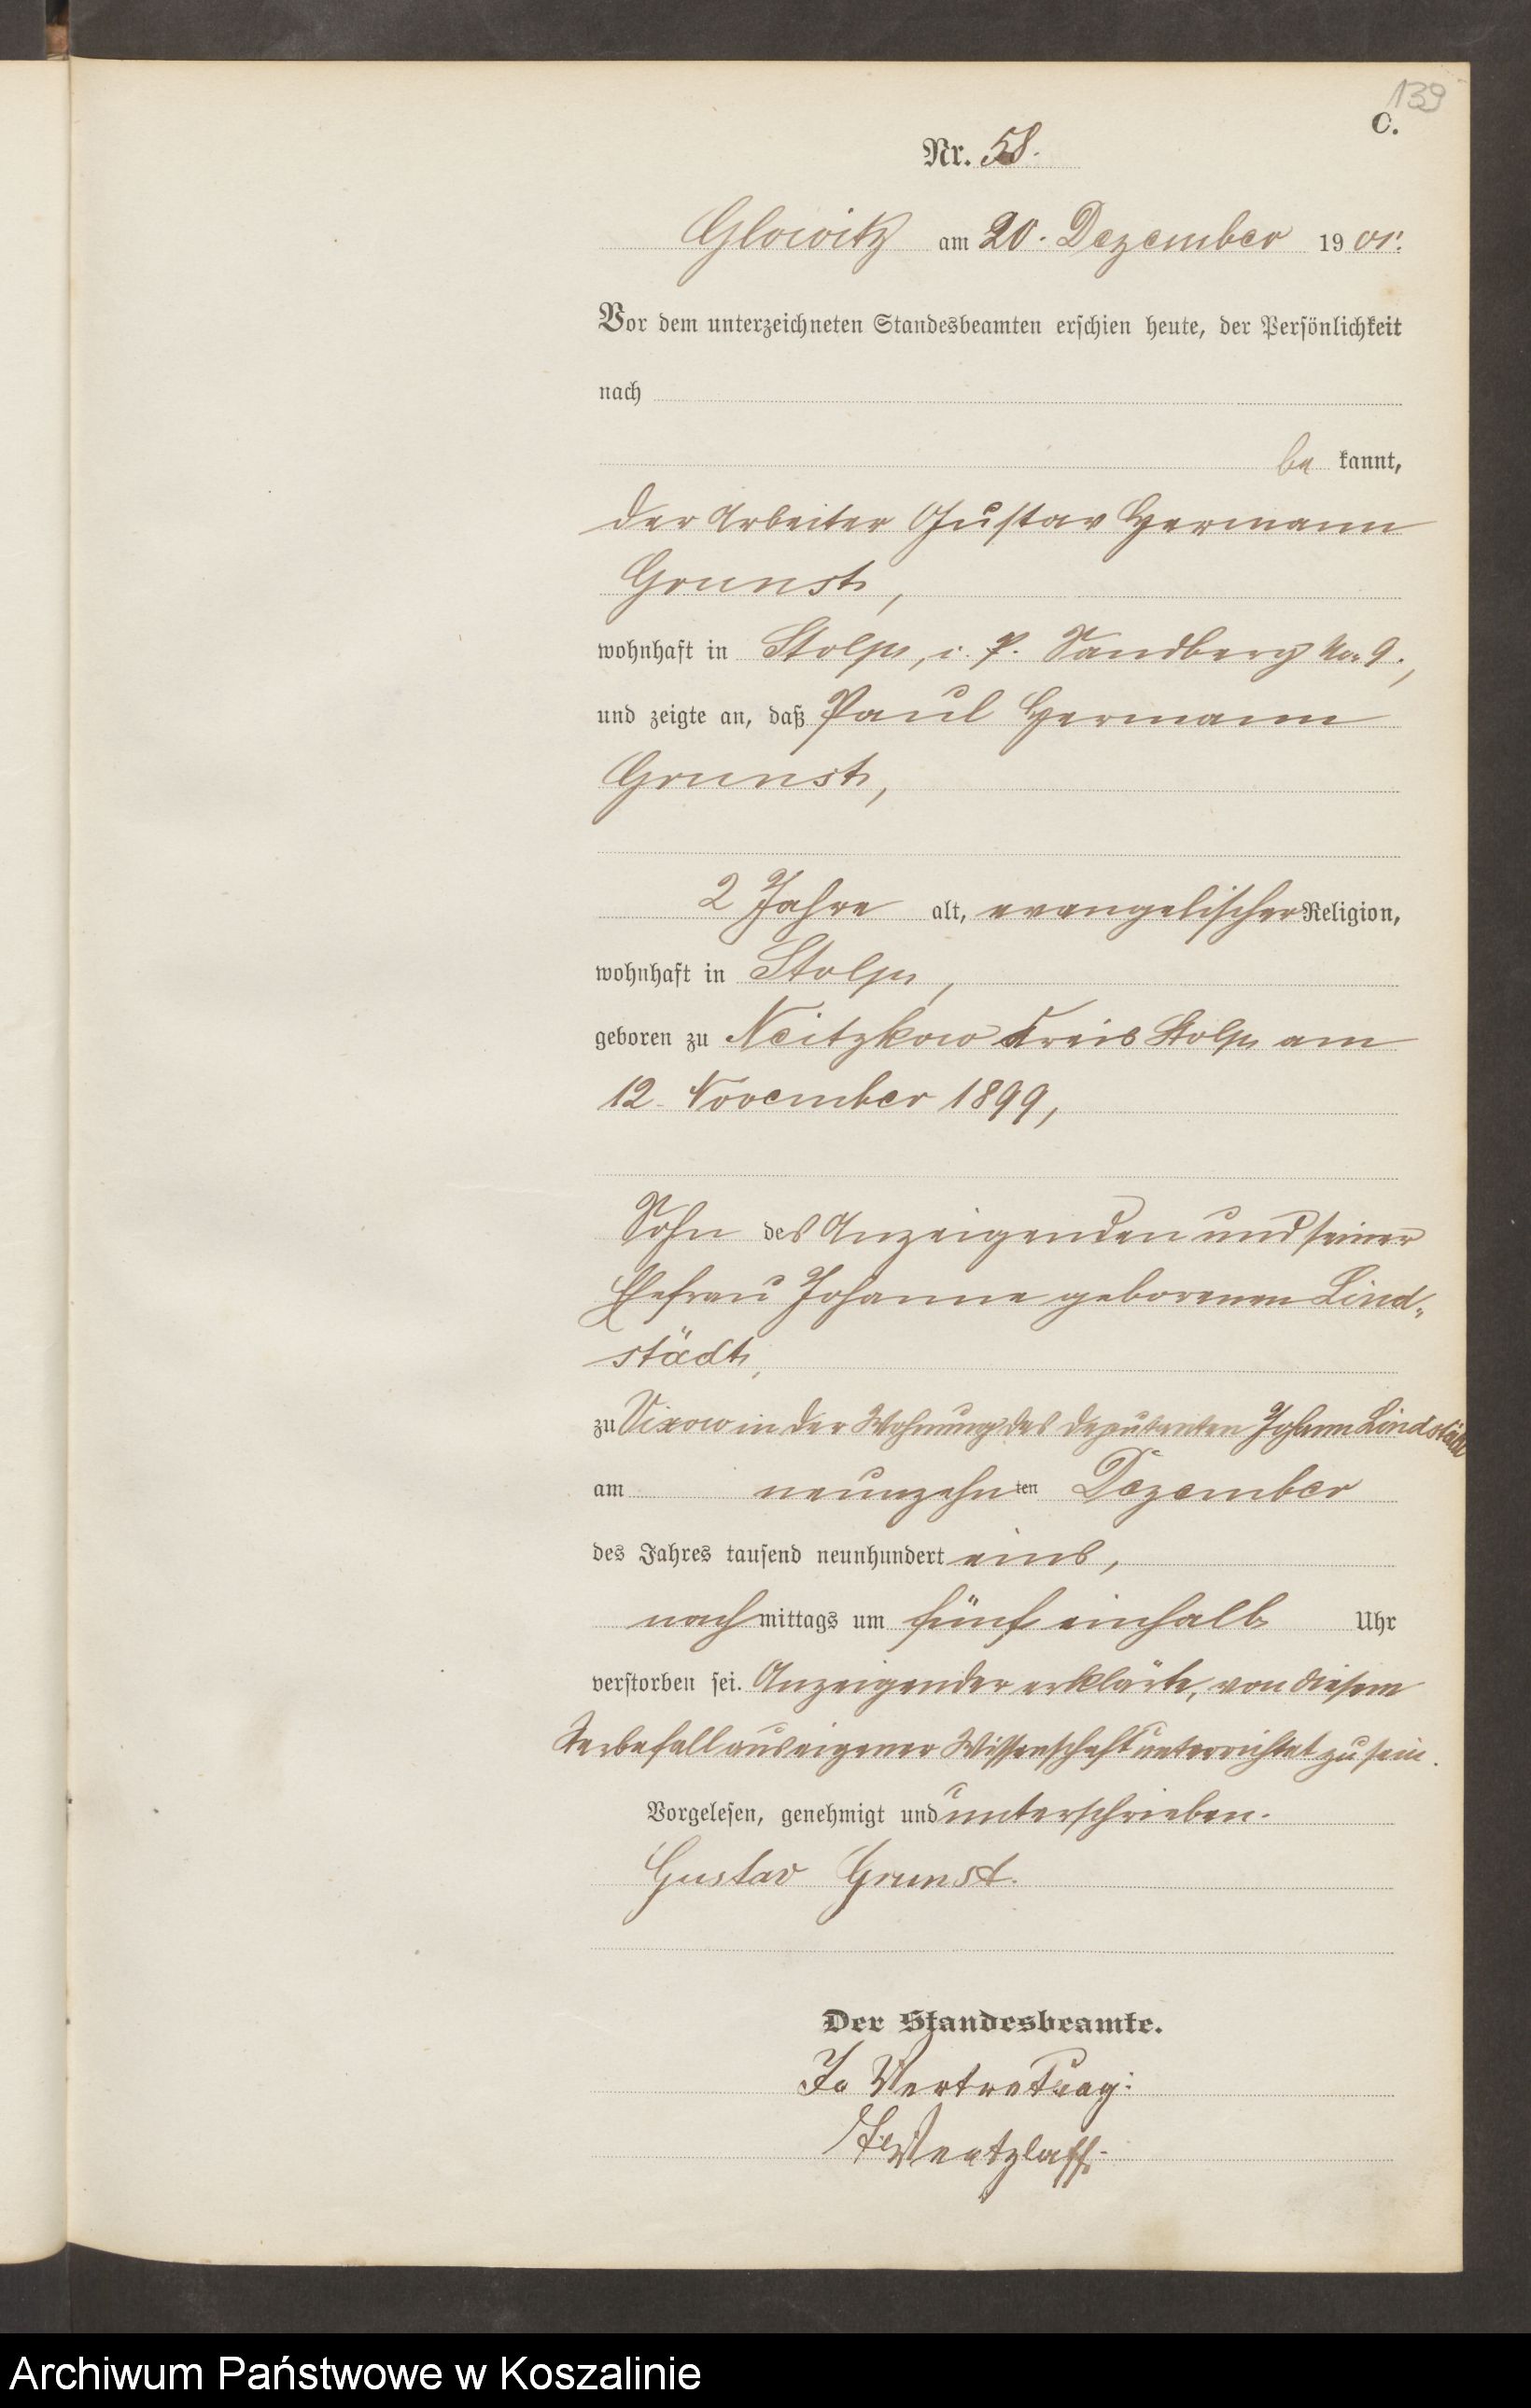 139
C.
Nr. 58.
Glowitz am 20. Dezember 1901.
Vor dem unterzeichneten Standesbeamten erschien heute, der Persönlichkeit
nach
be kannt,
der Arbeiter Gustav Hermann
Grunst,
wohnhaft in Stolp, i. P. Sandberg No 9.,
und zeigte an, daß Paul Hermann
Grunst,
2 Jahre alt, evangelischer Religion,
wohnhaft in Stolp,
geboren zu Neitzkow Kreis Stolp am
12. November 1899,
Sohn des Anzeigenden und seiner
Ehefrau Johanne geborenen Lind-
städt,
zu Vixow in der Wohnung des Deputanten Johann Lindstädt
am neunzehn ten Dezember
des Jahres tausend neunhundert eins,
nach mittags um fünf einhalb Uhr
verstorben sei. Anzeigender erklärte, von diesem
Sterbefall aus eigener Wissenschaft unterrichtet zu sein.
Vorgelesen, genehmigt und unterschrieben.
Gustav Grunst.
Der Standesbeamte.
In Vertretung:
Wentzlaff.
Archiwum Państwowe w Koszalinie